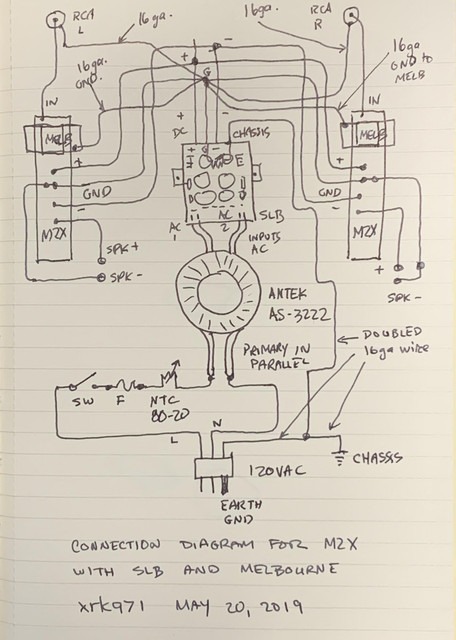 RCA L
16ga.
16ga.
RCA R
16ga. GND.
16ga GND to MELB
IN
MELB
+
GND
-
M2X
SPK+
SPK-
+
-
G
+
DC
-
CHASSIS
+ G -
AC 1
AC 2
SLB
INPUTS AC
IN
MELB
+
GND
-
M2X
+
-
SPK-
ANTEK
AS-3222
PRIMARY IN
PARALLEL
DOUBLED
16ga wire
SW
F
NTC
80-20
L
N
120VAC
EARTH
GND
CHASSIS
CONNECTION DIAGRAM FOR M2X
WITH SLB AND MELBOURNE
xrk971 MAY 20, 2019